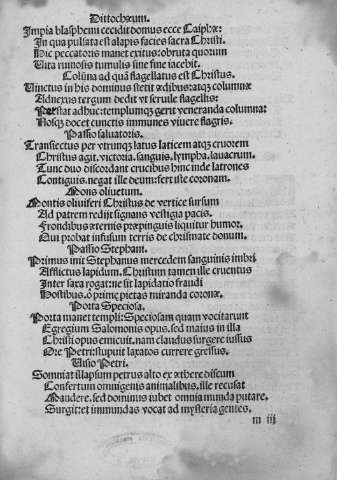 Dittochæum.
Impia blasphemi cecidit domus ecce Caiphæ:
In qua pulsata est alapis facies sacra Christi.
Hic peccatoris manet exitus: obruta quorum
Uita ruinosis tumulis sine fine iacebit.
Colũna ad quã flagellatus est Christus.
Uinctus in his dominus stetit ædibus: atqꝫ columnæ
Adnexus tergum dedit vt seruile flagellis:
Perstat adhuc: templumqꝫ gerit veneranda columna:
Nosqꝫ docet cunctis immunes viuere flagris.
Passio saluatoris.
Traiectus per vtrunqꝫ latus laticem atqꝫ cruorem
Christus agit. victoria. sanguis. lympha. lauacrum.
Tunc duo discordant crucibus hinc inde latrones
Contiguis. negat ille deum: fert iste coronam.
Mons oliuetum.
Montis oliuiferi Christus de vertice sursum
Ad patrem redijt signans vestigia pacis.
Frondibus æternis præpinguis liquitur humor.
Qui probat infusum terris de chrismate donum.
Passio Stephani.
Primus init Stephanus mercedem sanguinis imbri
Afflictus lapidum. Christum tamen ille cruentus
Inter saxa rogat: ne sit lapidatio fraudi
Hostibus. ó primę pietas miranda coronæ.
Porta Speciosa.
Porta manet templi: Speciosam quam vocitarunt
Egregium Salomonis opus. sed maius in illa
Christi opus emicuit. nam claudus surgere iussus
Ore Petri: stupuit laxatos currere gressus.
Uisio Petri.
Somniat illapsum petrus alto ex æthere discum
Confertum omnigenis animalibus. ille recusat
Mandere. sed dominus iubet omnia munda putare.
Surgit: et immundas vocat ad mysteria gentes.
m iij